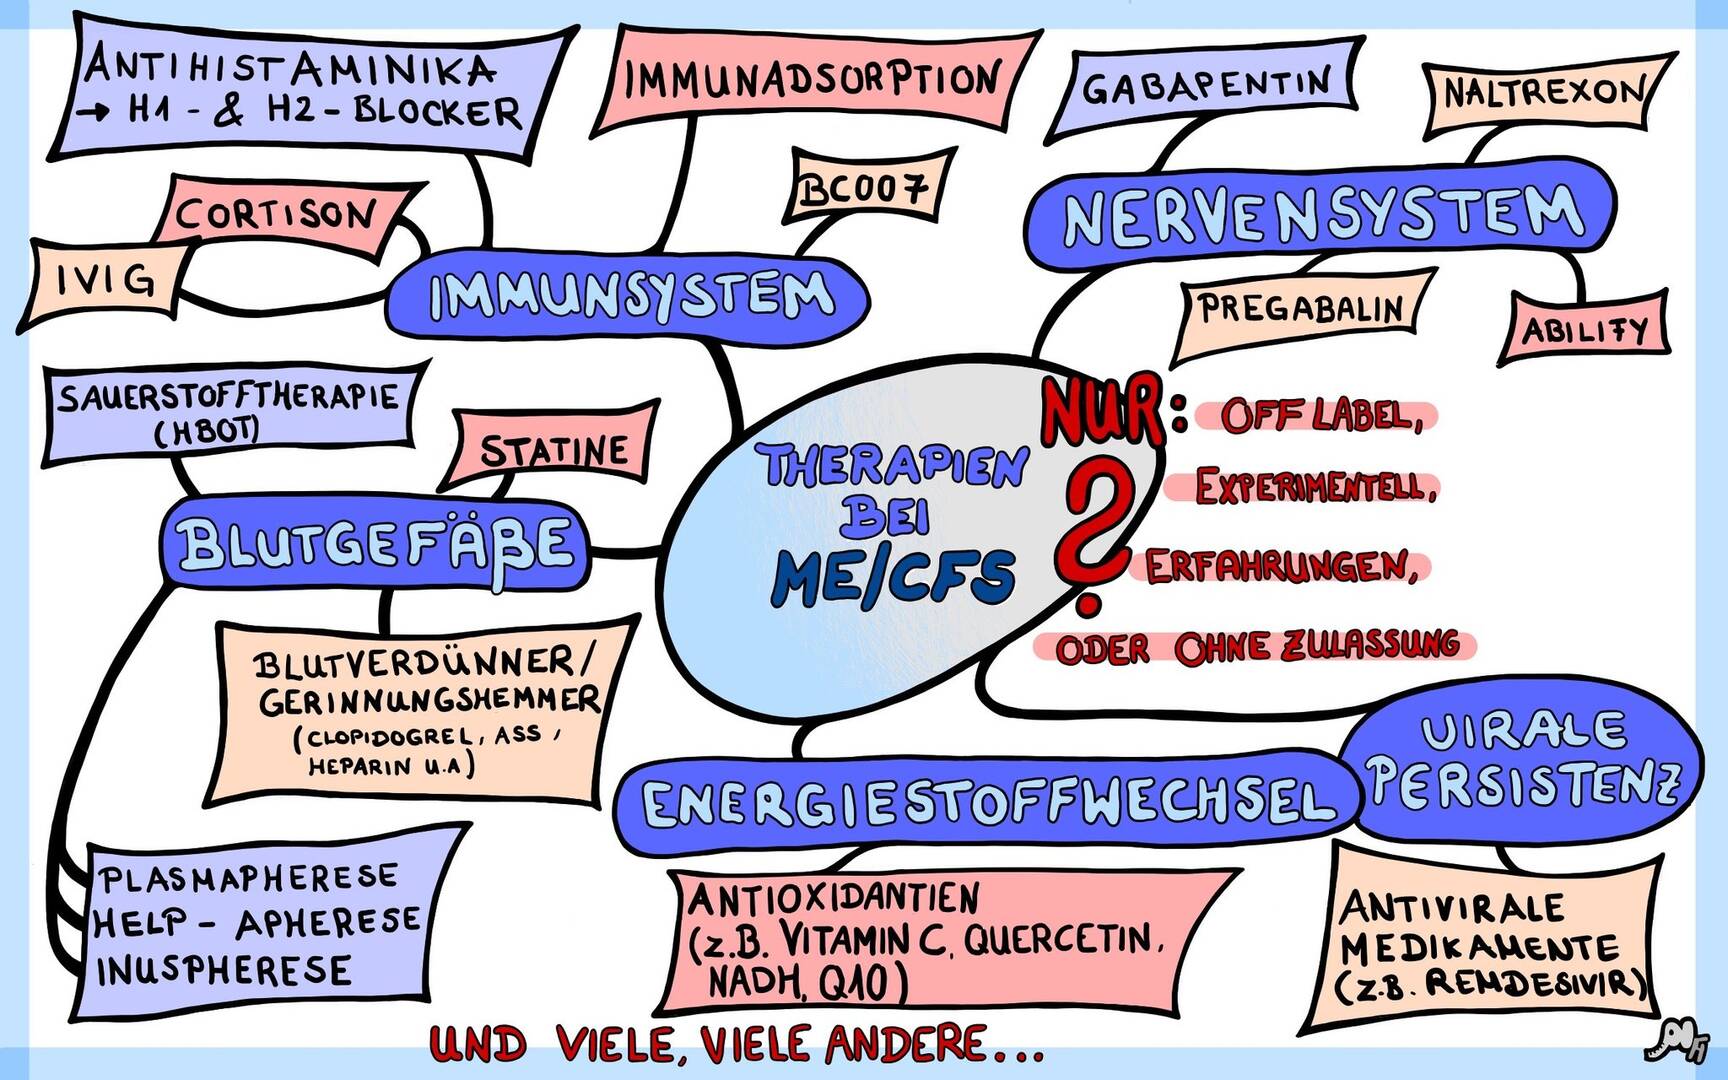 ANTIHISTAMINIKA
→ H1 - & H2 - BLOCKER
IMMUNADSORPTION
BC007
CORTISON
IVIG
IMMUNSYSTEM
GABAPENTIN
NALTREXON
NERVENSYSTEM
PREGABALIN
ABILIFY
SAUERSTOFFTHERAPIE
(HBOT)
STATINE
BLUTGEFÄßE
BLUTVERDÜNNER/
GERINNUNGSHEMMER
(CLOPIDOGREL, ASS,
HEPARIN U.A)
PLASMAPHERESE
HELP - APHERESE
INUSPHERESE
THERAPIEN
BEI
ME/CFS
?
NUR: OFF LABEL,
EXPERIMENTELL,
ERFAHRUNGEN,
ODER OHNE ZULASSUNG
ENERGIESTOFFWECHSEL
ANTIOXIDANTIEN
(Z.B. VITAMIN C, QUERCETIN,
NADH, Q10)
VIRALE
PERSISTENZ
ANTIVIRALE
MEDIKAMENTE
(Z.B. REMDESIVIR)
UND VIELE, VIELE ANDERE...